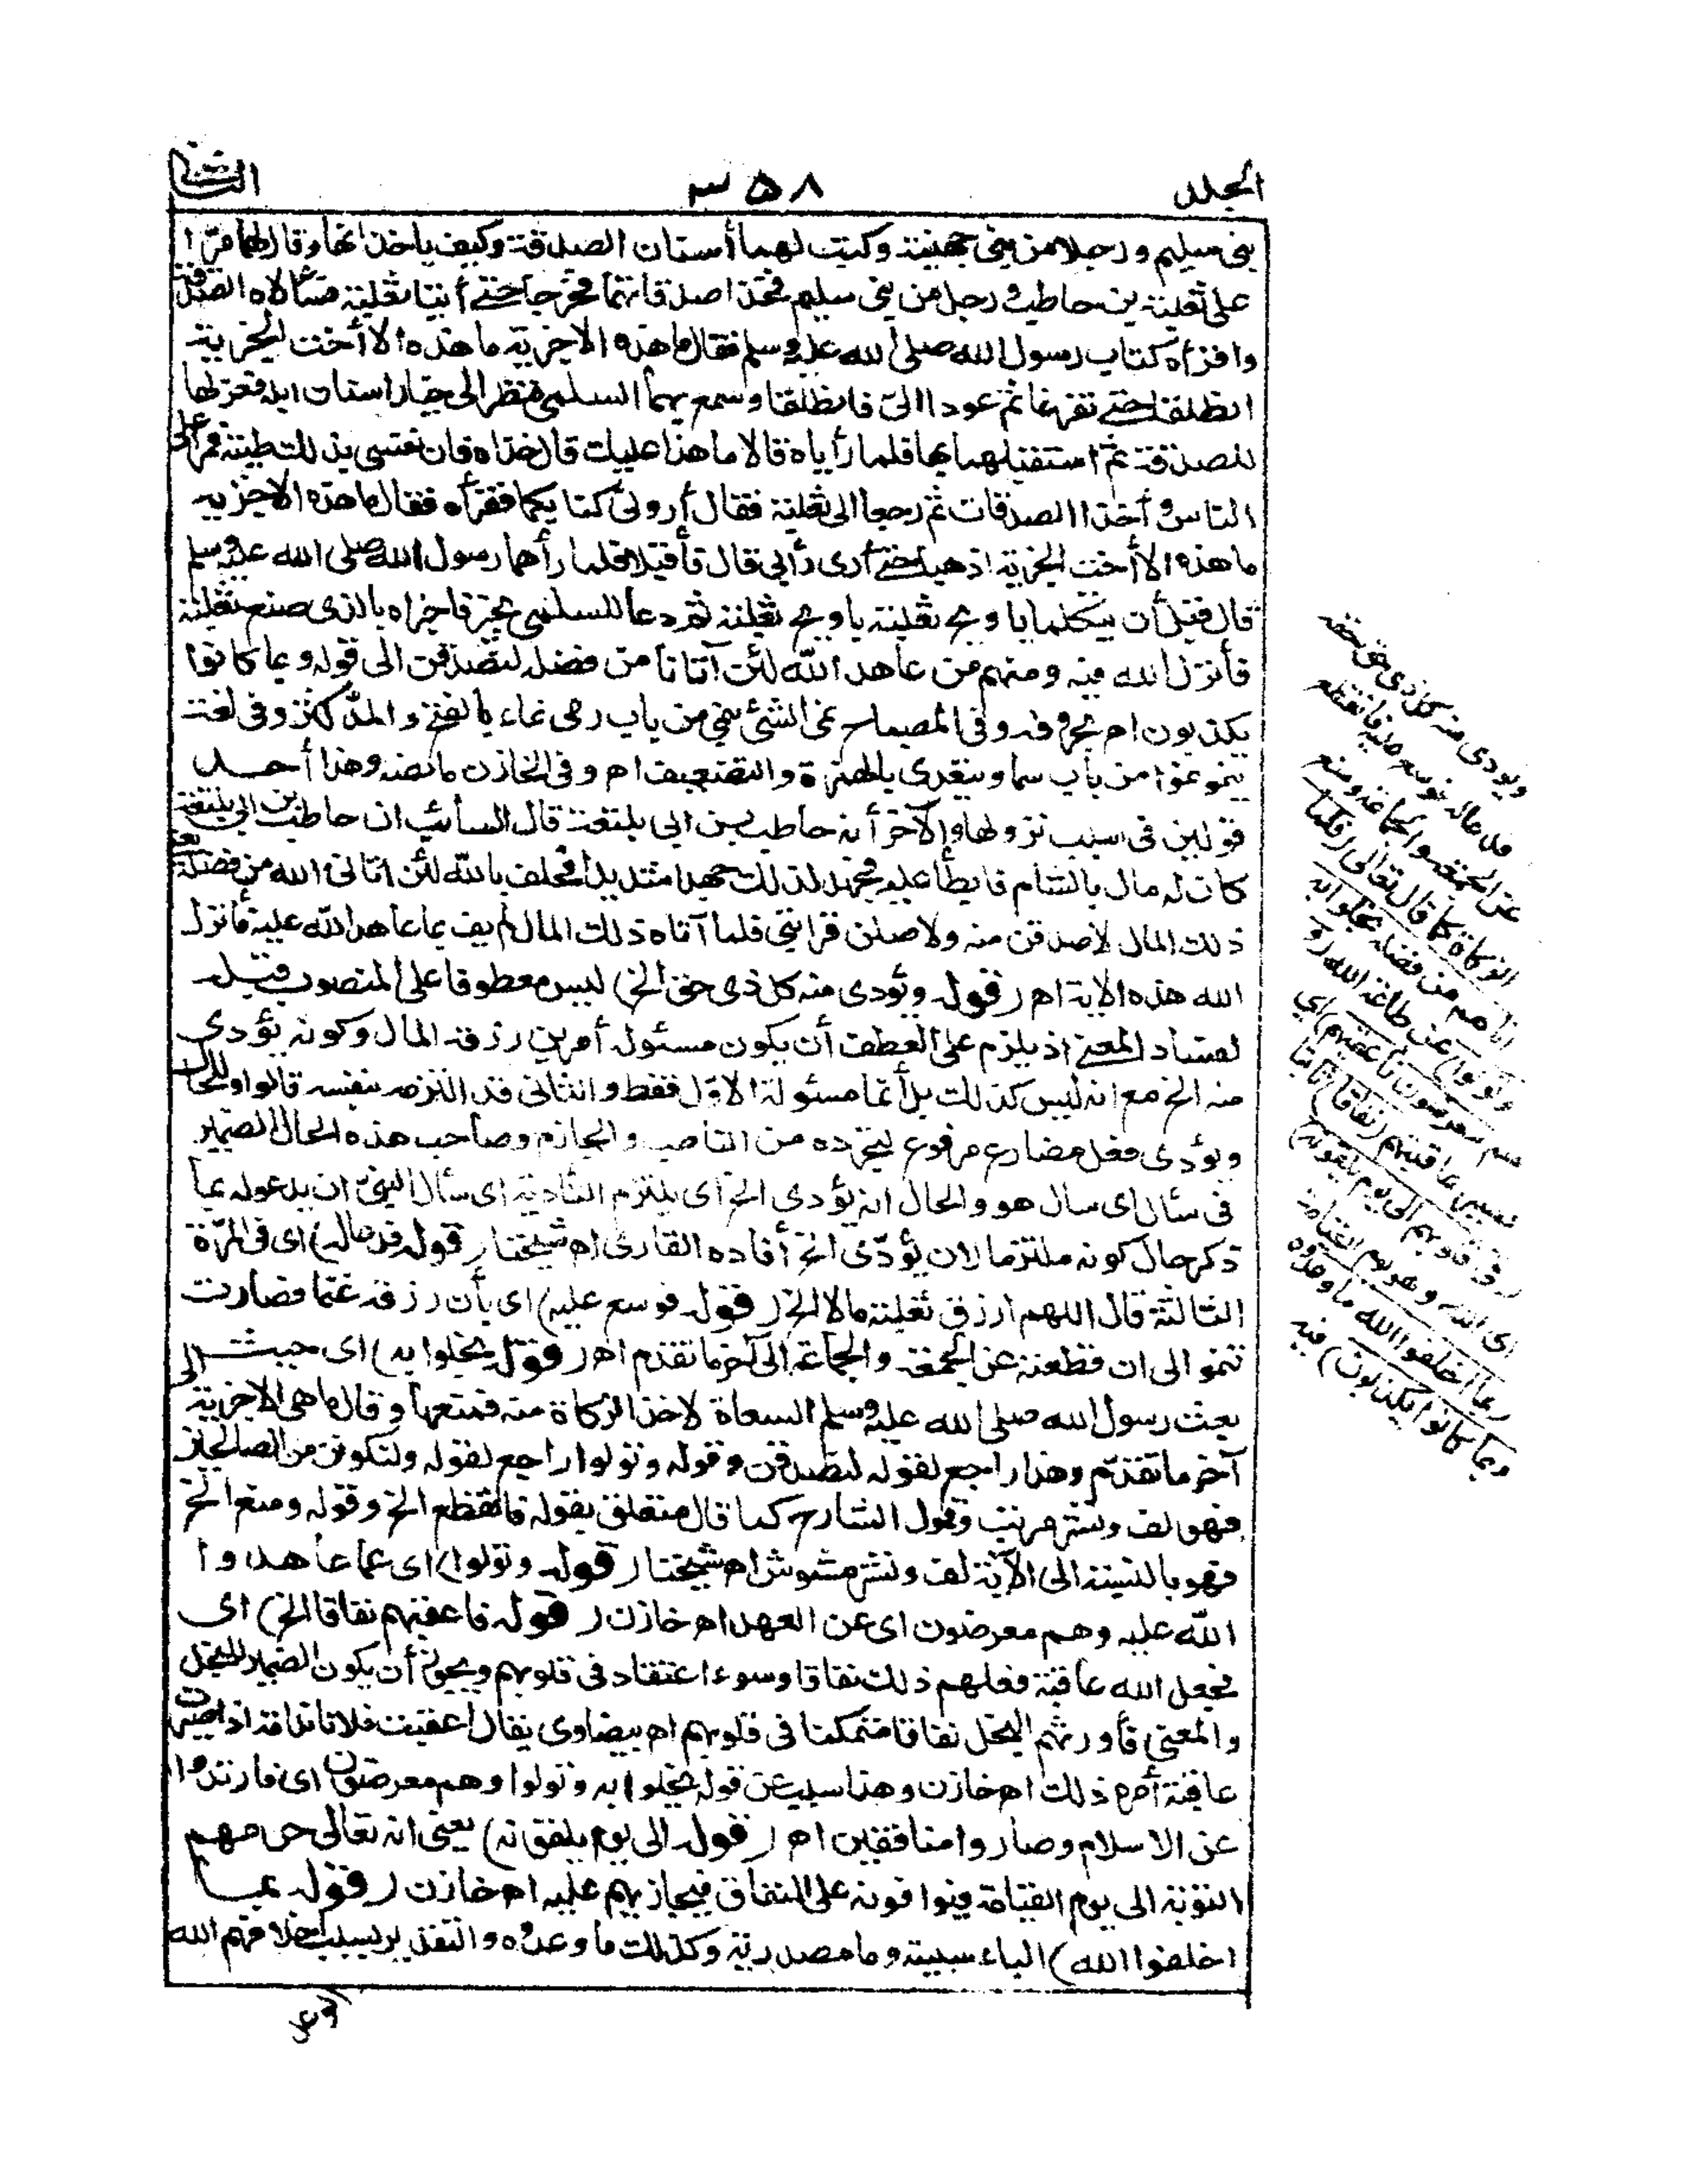 المجلد
٣٥٨
الثانی
بنی سلیم ورجلا من بنی جهینة وکتب لهما أسنان الصدقة وکیف یاخذانها وقال لهما مرّا
علی ثعلبة بن حاطب ورجل من بنی سلیم فخذا صدقاتهما فخرجا حتی أتیا ثعلبة فسألاه الصدقة
وأقرأه کتاب رسول الله صلی الله علیه وسلم فقال ما هذه الا جزیة ما هذه الا أخت الجزیة
انطلقا حتی تفرغا ثم عودا الیّ فانطلقا وسمع بهما السلمی فنظر الی خیار اسنان ابله فعزلها
للصدقة ثم استقبلهما بها فلما رأیاه قالا ما هذا علیك قال خذاه فان نفسی بذلك طیبة فمرا علی
الناس وأخذا الصدقات ثم رجعا الی ثعلبة فقال أرونی کتابکما فقرأه فقال ما هذه الا جزیة
ما هذه الا أخت الجزیة اذهبا حتی أری رأیی قال فأقبلا فلما رأهما رسول الله صلی الله علیه وسلم
قال قبل أن یتکلما یا ویح ثعلبة یا ویح ثعلبة ثم دعا للسلمی بخیر فاخبراه بالذی صنع ثعلبة
فأنزل الله فیه ومنهم من عاهد الله لئن آتانا من فضله لنصدقن الی قوله وبما کانوا
یکذبون اه بحروفه وفی المصباح نمی الشئ ینمی من باب رمی نماء بالفتح والمدّ کثر وفی لغة
ینمو نموا من باب سما ویتعدی بالهمزة والتضعیف اه وفی الخازن ما نصه وهذا أحد
قولین فی سبب نزولها والآخر أنه حاطب بن ابی بلتعة قال السائب ان حاطب بن ابی بلتعة
کان له مال بالشام فابطأ علیه فجهد لذلك جهدا شدیدا فحلف بالله لئن اتانی الله من فضله یعنی
ذلك المال لاصدقن منه ولاصلن قرابتی فلما آتاه ذلك المال لم یف بما عاهد الله علیه فأنزل
الله هذه الایة اه (قوله ویؤدی منه کل ذی حق الخ) لیس معطوفا علی المنصوب قبله
لفساد المعنی اذ یلزم علی العطف أن یکون مسئوله أمرین رزقه المال وکونه یؤدی
منه الخ مع انه لیس کذلك بل أنما مسئوله الاوّل فقط والثانی قد التزمه بنفسه قالوا وللحال
ویؤدی فعل مضارع مرفوع لتجرّده من الناصب والجازم وصاحب هذه الحال الضمیر
فی سأل ای سال هو والحال انه یؤدی الخ ای یلتزم التأدیة ای سأل النبیّ ان یدعوله بما
ذکر حال کونه ملتزما لان یؤدّی الخ أفاده القاری اه شیخنا (قوله فدعا له) ای فی المرّة
الثالثة قال اللهم ارزق ثعلبة مالا الخ (قوله فوسع علیه) ای بأن رزقه غنما فصارت
تنمو الی ان قطعته عن الجمعة والجماعة الی آخر ما تقدم اه (قوله بخلوا به) ای حیث الی
بعث رسول الله صلی الله علیه وسلم السعاة لاخذ الزکاة منه فمنعها وقال ما هی الا جزیة
آخر ما تقدّم وهذا راجع لقوله لنصدقن وقوله وتولوا راجع لقوله ولنکونن من الصالحین
فهو لف ونشر مرتب وقول الشارح کما قال متعلق بقوله فانقطع الخ وقوله ومنع الخ
فهو بالنسبة الی الآیة لف ونشر مشوش اه شیخنا (قوله وتولوا) ای عما عاهدوا
الله علیه وهم معرضون ای عن العهد اه خازن (قوله فاعقبهم نفاقا الخ) ای
فجعل الله عاقبة فعلهم ذلك نفاقا وسوء اعتقاد فی قلوبهم ویجوز أن یکون الضمیر للبخل
والمعنی فأورثهم البخل نفاقا متمکنا فی قلوبهم اه بیضاوی یقال اعقبت فلانا ندامة اذا صیرت
عاقبة أمره ذلك اه خازن وهذا سبب عن قوله بخلوا به وتولوا وهم معرضون ای فارتدوا
عن الاسلام وصاروا منافقین اه (قوله الی یوم یلقونه) یعنی انه تعالی حرمهم
التوبة الی یوم القیامة فیوافونه علی النفاق فیجازیهم علیه اه خازن (قوله بما
اخلفوا الله) الباء سببیة وما مصدریة وکذلك ما وعدوه والتقدیر بسبب اخلافهم الله
ویؤدی منه کل ذی حق حقه
فدعا له فوسع علیه فانقطع
عن الجمعة والجماعة ومنع
الزکاة کما قال تعالی (فلما
آتاهم من فضله بخلوا به
وتولوا) عن طاعة الله (و
هم معرضون فأعقبهم) ای
فصیر عاقبتهم (نفاقا) ثابتا
(فی قلوبهم الی یوم یلقونه)
ای الله وهو یوم القیامة
(بما اخلفوا الله ما وعدوه
وبما کانوا یکذبون) فیه